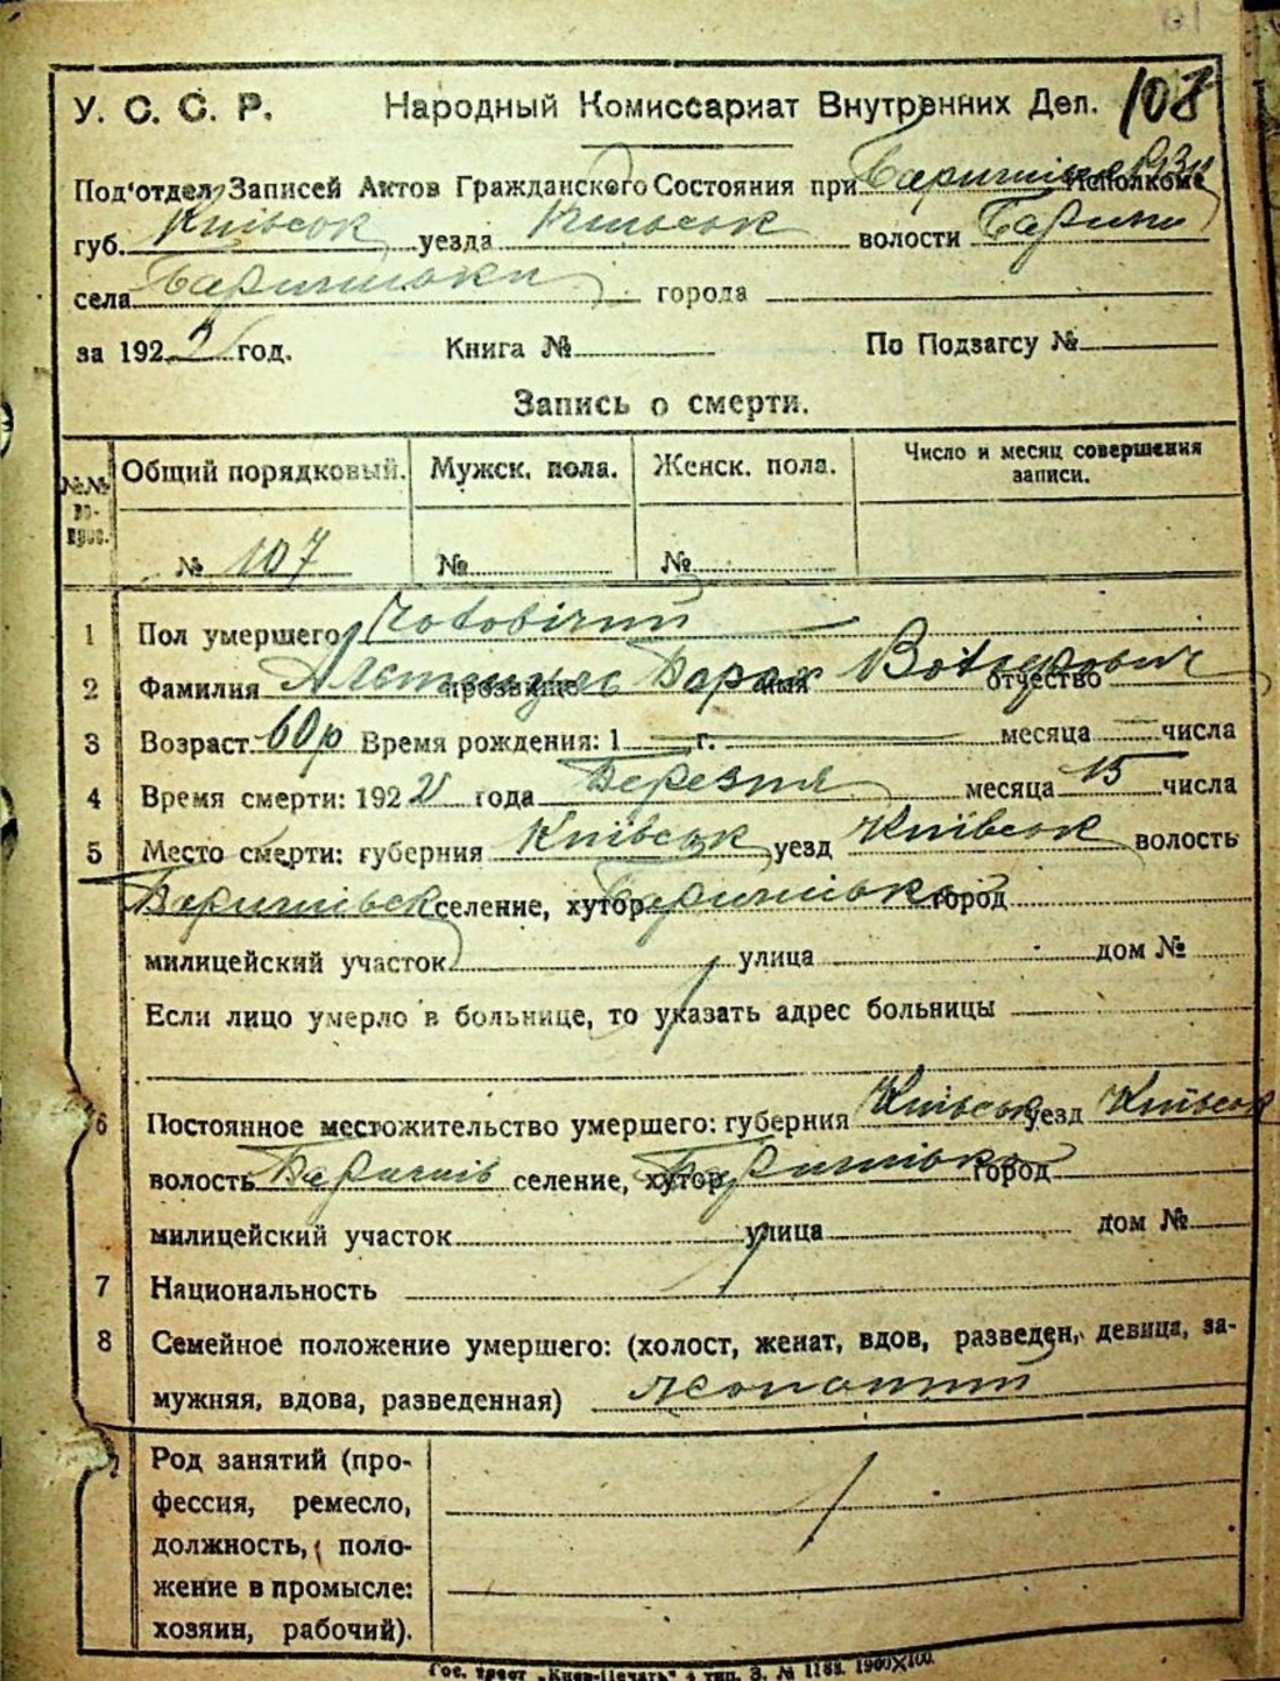 У. С. С. Р. Народный Комиссариат Внутренних Дел. 108
Под'отдел Записей Актов Гражданского Состояния при Исполкоме
губ. Київськ уезда Київськ волости Бариш
села Баришівки города
за 192 год. Книга № По Подзагсу №
Запись о смерти.
№№ Общий порядковый. Мужск. пола. Женск. пола. Число и месяц совершения
записи.
№ 107 № №
1 Пол умершего Чоловічий
2 Фамилия прозвище Борох имя отчество
3 Возраст 60 р Время рождения: 1 г. месяца числа
4 Время смерти: 192 года Березня месяца 15 числа
5 Место смерти: губерния Київськ уезд Київськ волость
Баришівськ селение, хутор Баришівка город
милицейский участок улица дом №
Если лицо умерло в больнице, то указать адрес больницы
6 Постоянное местожительство умершего: губерния Київськ уезд Київськ
волость Баришів селение, хутор Баришівка город
милицейский участок улица дом №
7 Национальность
8 Семейное положение умершего: (холост, женат, вдов, разведен, девица, за-
мужняя, вдова, разведенная) жонатий
Род занятий (про-
фессия, ремесло,
должность, поло-
жение в промысле:
хозяин, рабочий).
Гос. трест „Киев-Печать" 4 тип. З. № 1188. 1900X100.